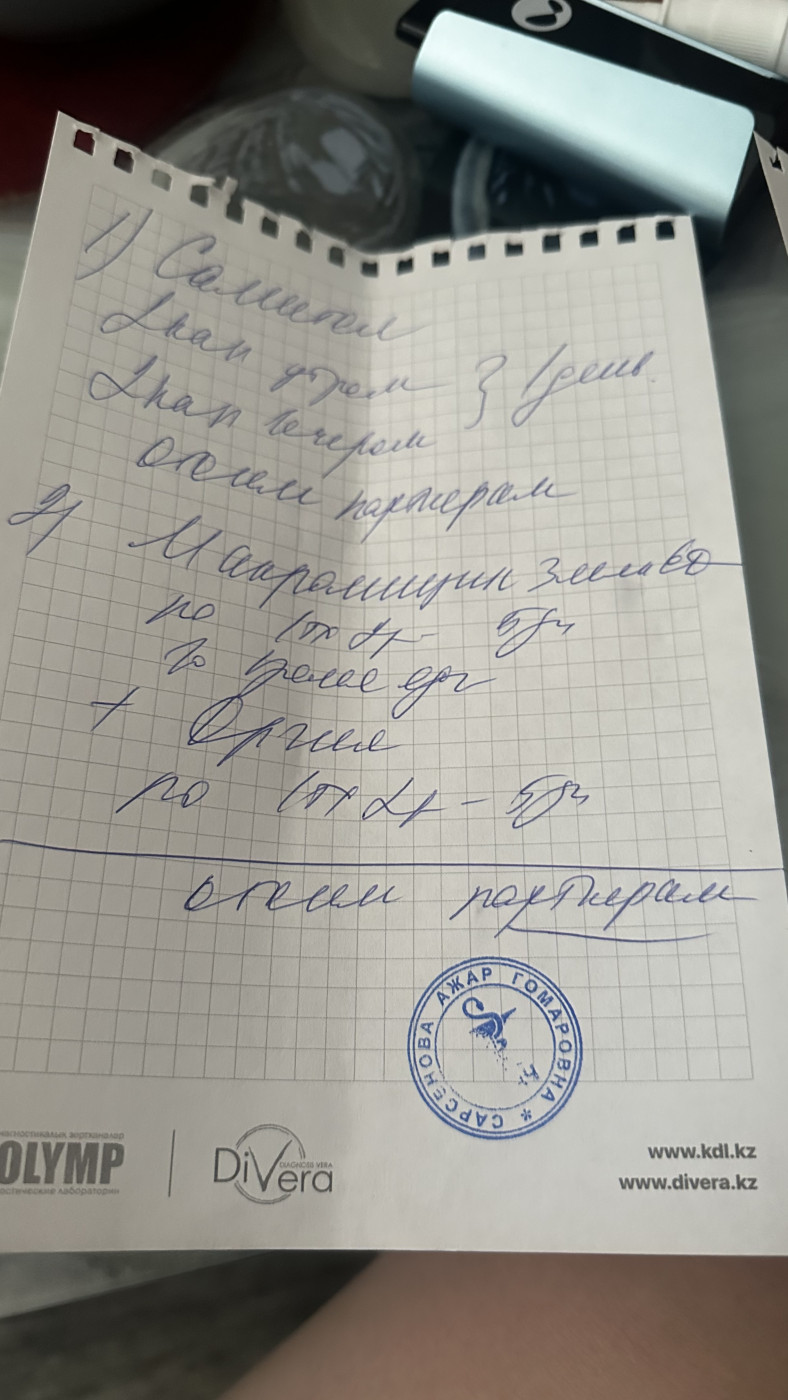 1) Салитол
2 кап утром } 1 день.
2 кап вечером
обоим партнерам
2)
по 1т 2р - 5дн
после еды
+ Оргил
по 1т 2р - 5дн
обоим партнерам
САРСЕНОВА АЖАР ГОМАРОВНА *
OLYMP
DiVera
DIAGNOSIS VERA
www.kdl.kz
www.divera.kz